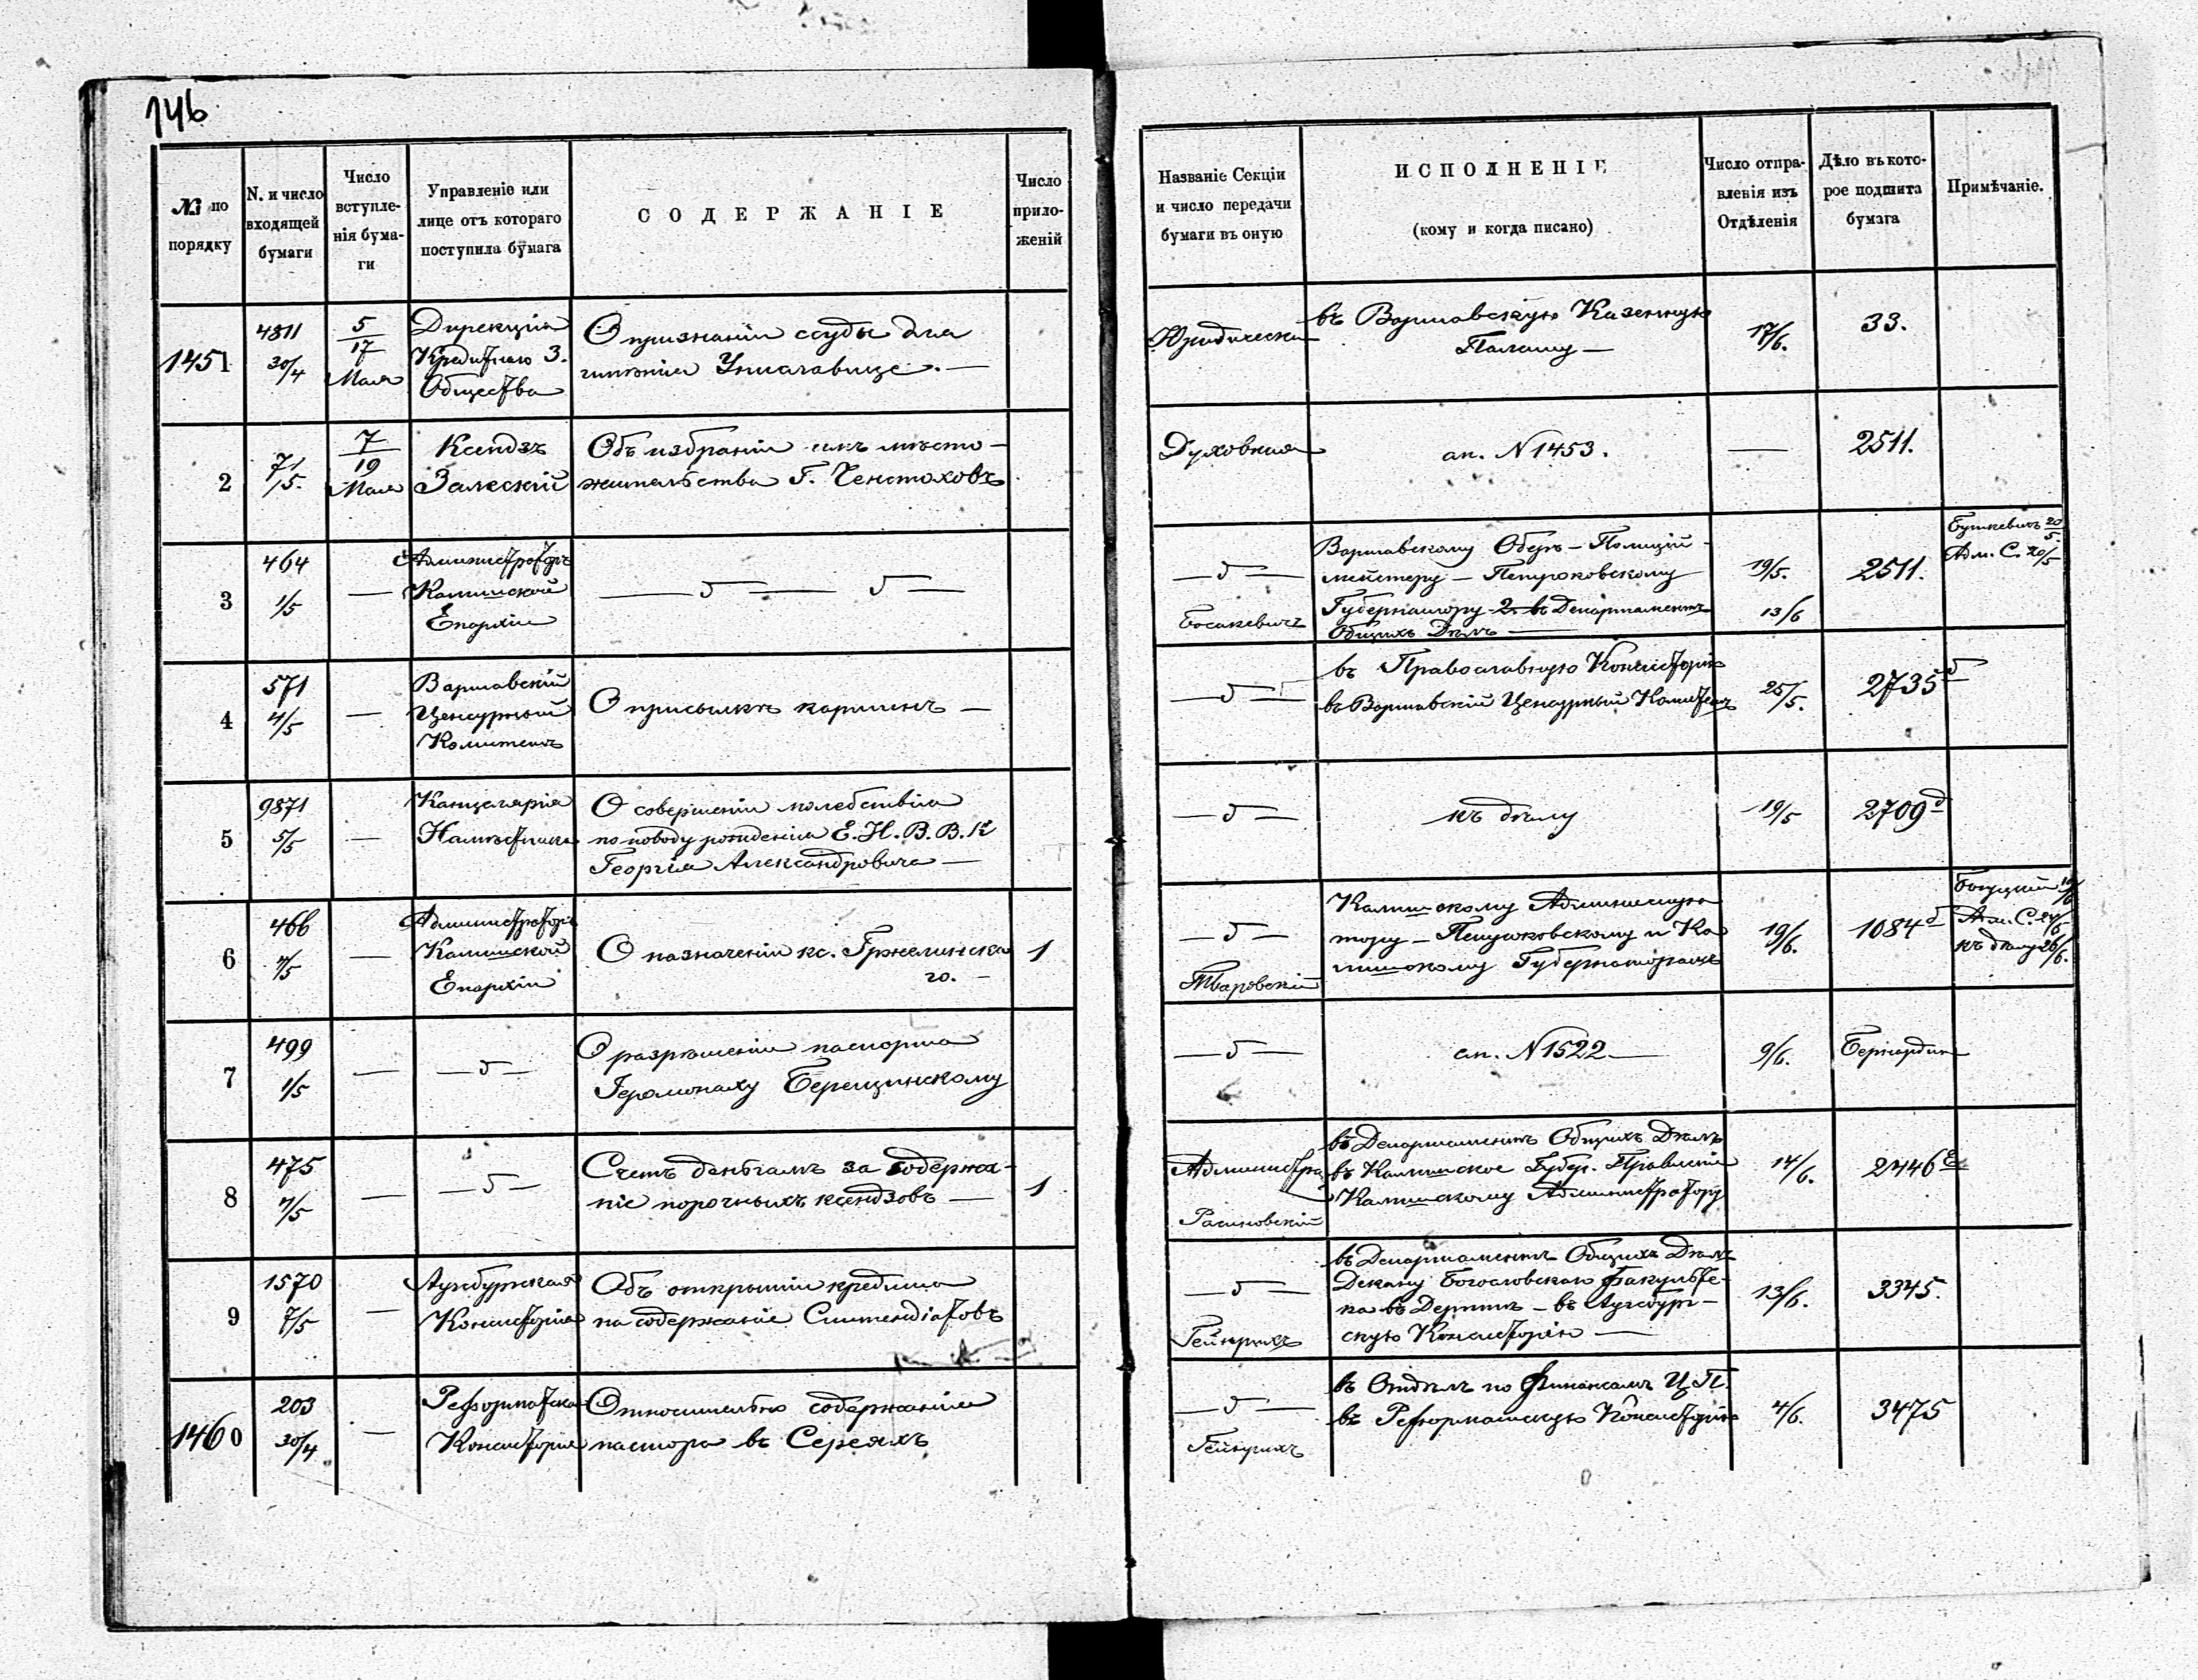 146
№ по порядку
N. и число входящей бумаги
Число вступле-
нія бума-
ги
Управленіе или
лице отъ котораго
поступила бумага
СОДЕРЖАНІЕ
Число
прило-
женій
Названіе Секціи
и число передачи
бумаги въ оную
ИСПОЛНЕНІЕ
(кому и когда писано)
Число отпра-
вленія изъ
Отдѣленія
Дѣло въ кото-
рое подшита
бумага
Примѣчаніе.
1451
4811
30/4
5/17
Мая
Дирекція
Кредитнаго З.
Общества
О признаніи ссуды для
имѣнія
Юридическая
въ Варшавскую Казенную
Палату —
17/6.
33.
2
71
/5.
7/19
Мая
Ксендзъ
Залескій
Объ избраніи имъ мѣсто-
жительства Г. Ченстоховъ
Духовная
ап. N 1453.
—
2511.
3
464
1/5
—
Администраторъ
Калишской
Епархіи
— б — б —
— б —
Босакевичъ
Варшавскому Оберъ-Полицій-
мейстеру — Петроковскому
Губернатору 2. въ Департаментъ
Общихъ Дѣлъ —
19/5.
13/6
2511.
Буткевичъ 20/5.
Адм. С. 20/5
4
571
4/5
—
Варшавскій
Ценсурный
Комитетъ
О присылкѣ картинъ —
— б —
въ Православную Консисторію
въ Варшавскій Цензурный Комитетъ
25/5.
2735 б
5
9871
5/5
—
Канцелярія
Намѣстника
О совершеніи молебствія
по поводу рожденія Е. И. В. В. К
Георгія Александровича —
— б —
къ дѣлу
19/5
2709 д
6
466
7/5
—
Администраторъ
Калишской
Епархіи
О назначеніи кс. Гржелинска
го. —
1
— б —
Тваровскій
Калишскому Администра
тору — Петроковскому и Ка
лишскому Губернаторамъ
19/6.
1084 б
Адм. С. 24/6
къ дѣлу 26/6.
7
499
1/5
—
— б —
О разрѣшеніи паспорта
Іеромонаху Берещинскому
— б —
ап. N 1522 —
9/6.
Бернардин
8
475
7/5
—
— б —
Счетъ деньгамъ за содержа-
ніе порочныхъ ксендзовъ —
1
Администра
Расиновскій
въ Департаментъ Общихъ Дѣлъ
въ Калишское Губер. Правленіе
Калишскому Администратору
14/6.
2446
9
1570
7/5
—
Аугсбургская
Консисторія
Объ открытіи кредита
на содержаніе Стипендіатовъ
— б —
Гейнрихъ
въ Департаментъ Общихъ Дѣлъ
Декану Богословскаго Факульте-
та въ Дерптѣ — въ Аугсбург-
скую Консисторію —
13/6.
3345.
1460
203
30/4
—
Реформатская
Консисторія
Относительно содержанія
пастора въ Сереяхъ
— б —
Гейнрихъ
въ Отдѣлъ по Финансамъ Ц. П.
въ Реформатскую Консисторію
4/6.
3475